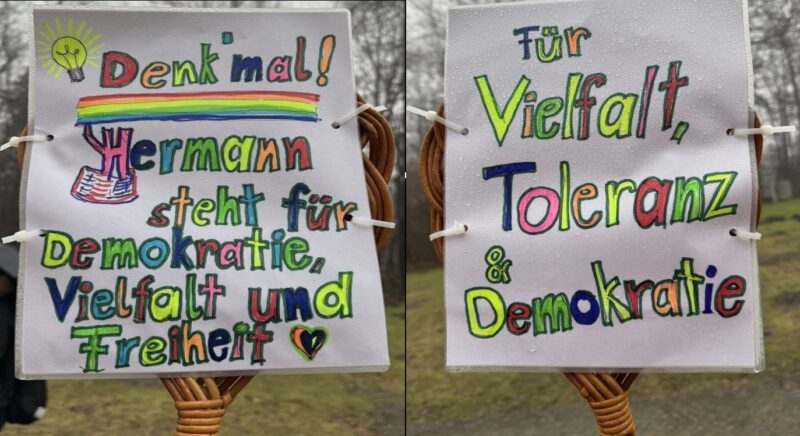 Denk'mal!
Hermann
steht für
Demokratie,
Vielfalt und
Freiheit
Für
Vielfalt,
Toleranz
&
Demokratie